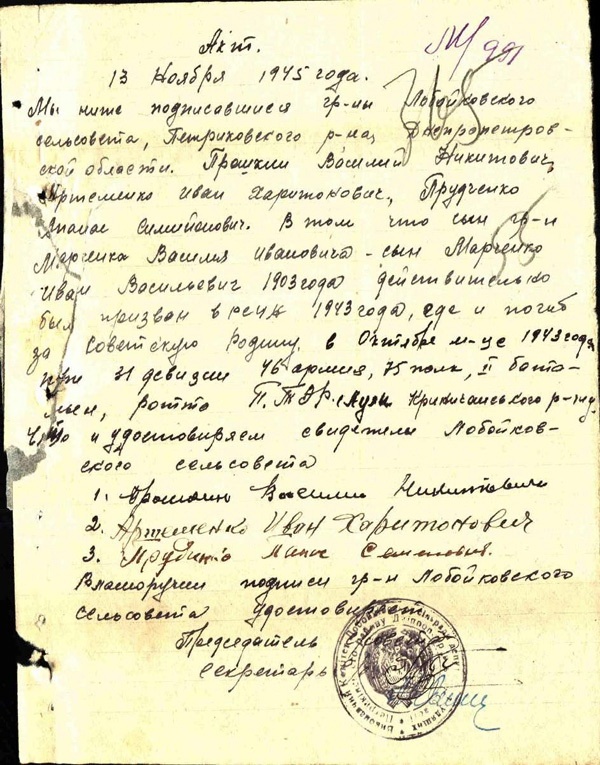 Акт.
13 Ноября 1945 года.
Мы ниже подписавшиеся гр-ны Лобойковского
сельсовета, Петриковского р-на, Днепропетров-
ской области. Прошкин Василий Никитович,
Артеменко Иван Харитонович, Прудченко
Апанас Симийонович. В том что сын гр-н
Марченка Василия Ивановича - сын Марченко
Иван Васильевич 1903 года действительно
был призван в РККА 1943 года, где и погиб
за Советскую Родину, в Октябре м-це 1943 года
при 31 девизии 46 армия, 75 полк, II бата-
льен, ротто П.Т.Р. Криничанського р-на
Что и удостовиряем свидетели Лобойков-
ского сельсовета
1. Прошкин Василий Никитович
2. Артеменко Иван Харитонович
3.
Власноручни подписи гр-н Лобойковского
сельсовета удостовиряет
Председатель
Секретарь